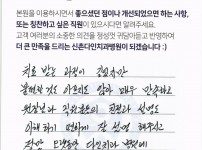 본원을 이용하시면서 좋으셨던 점이나 개선되었으면 하는 사항,
또는 칭찬하고 싶은 직원이 있으시다면 알려주세요.
고객 여러분의 소중한 의견을 정성껏 귀담아듣고 반영하여
더 큰 만족을 드리는 신촌다인치과병원이 되겠습니다 :)
치료 받는 과정이 길었지만
불편한 것도 아픈것도 없이 매우 만족하고
원장님과 직원분들의 친절과 설명도
이해하기 편하게 잘 설명 해주시고
다인치과